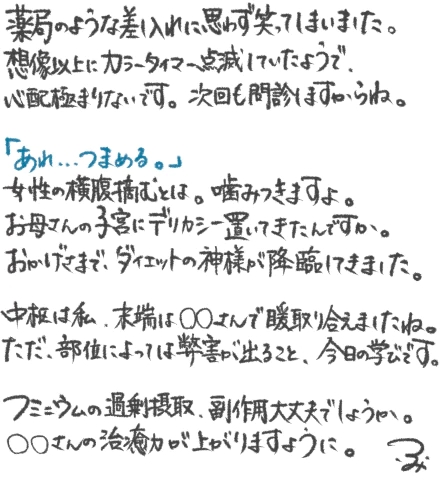 薬局のような差し入れに思わず笑ってしまいました。
想像以上にカラータイマー点滅していたようで、
心配極まりないです。次回も問診しますからね。
「あれ…つまめる。」
女性の横腹摘むとは。噛みつきますよ。
お母さんの子宮にデリカシー置いてきたんですか。
おかげさまで、ダイエットの神様が降臨してきました。
中枢は私、末端は〇〇さんで暖取り合えましたね。
ただ、部位によっては弊害が出ること、今日の学びです。
フミニウムの過剰摂取、副作用大丈夫でしょうか。
〇〇さんの治癒力が上がりますように。 ふみ